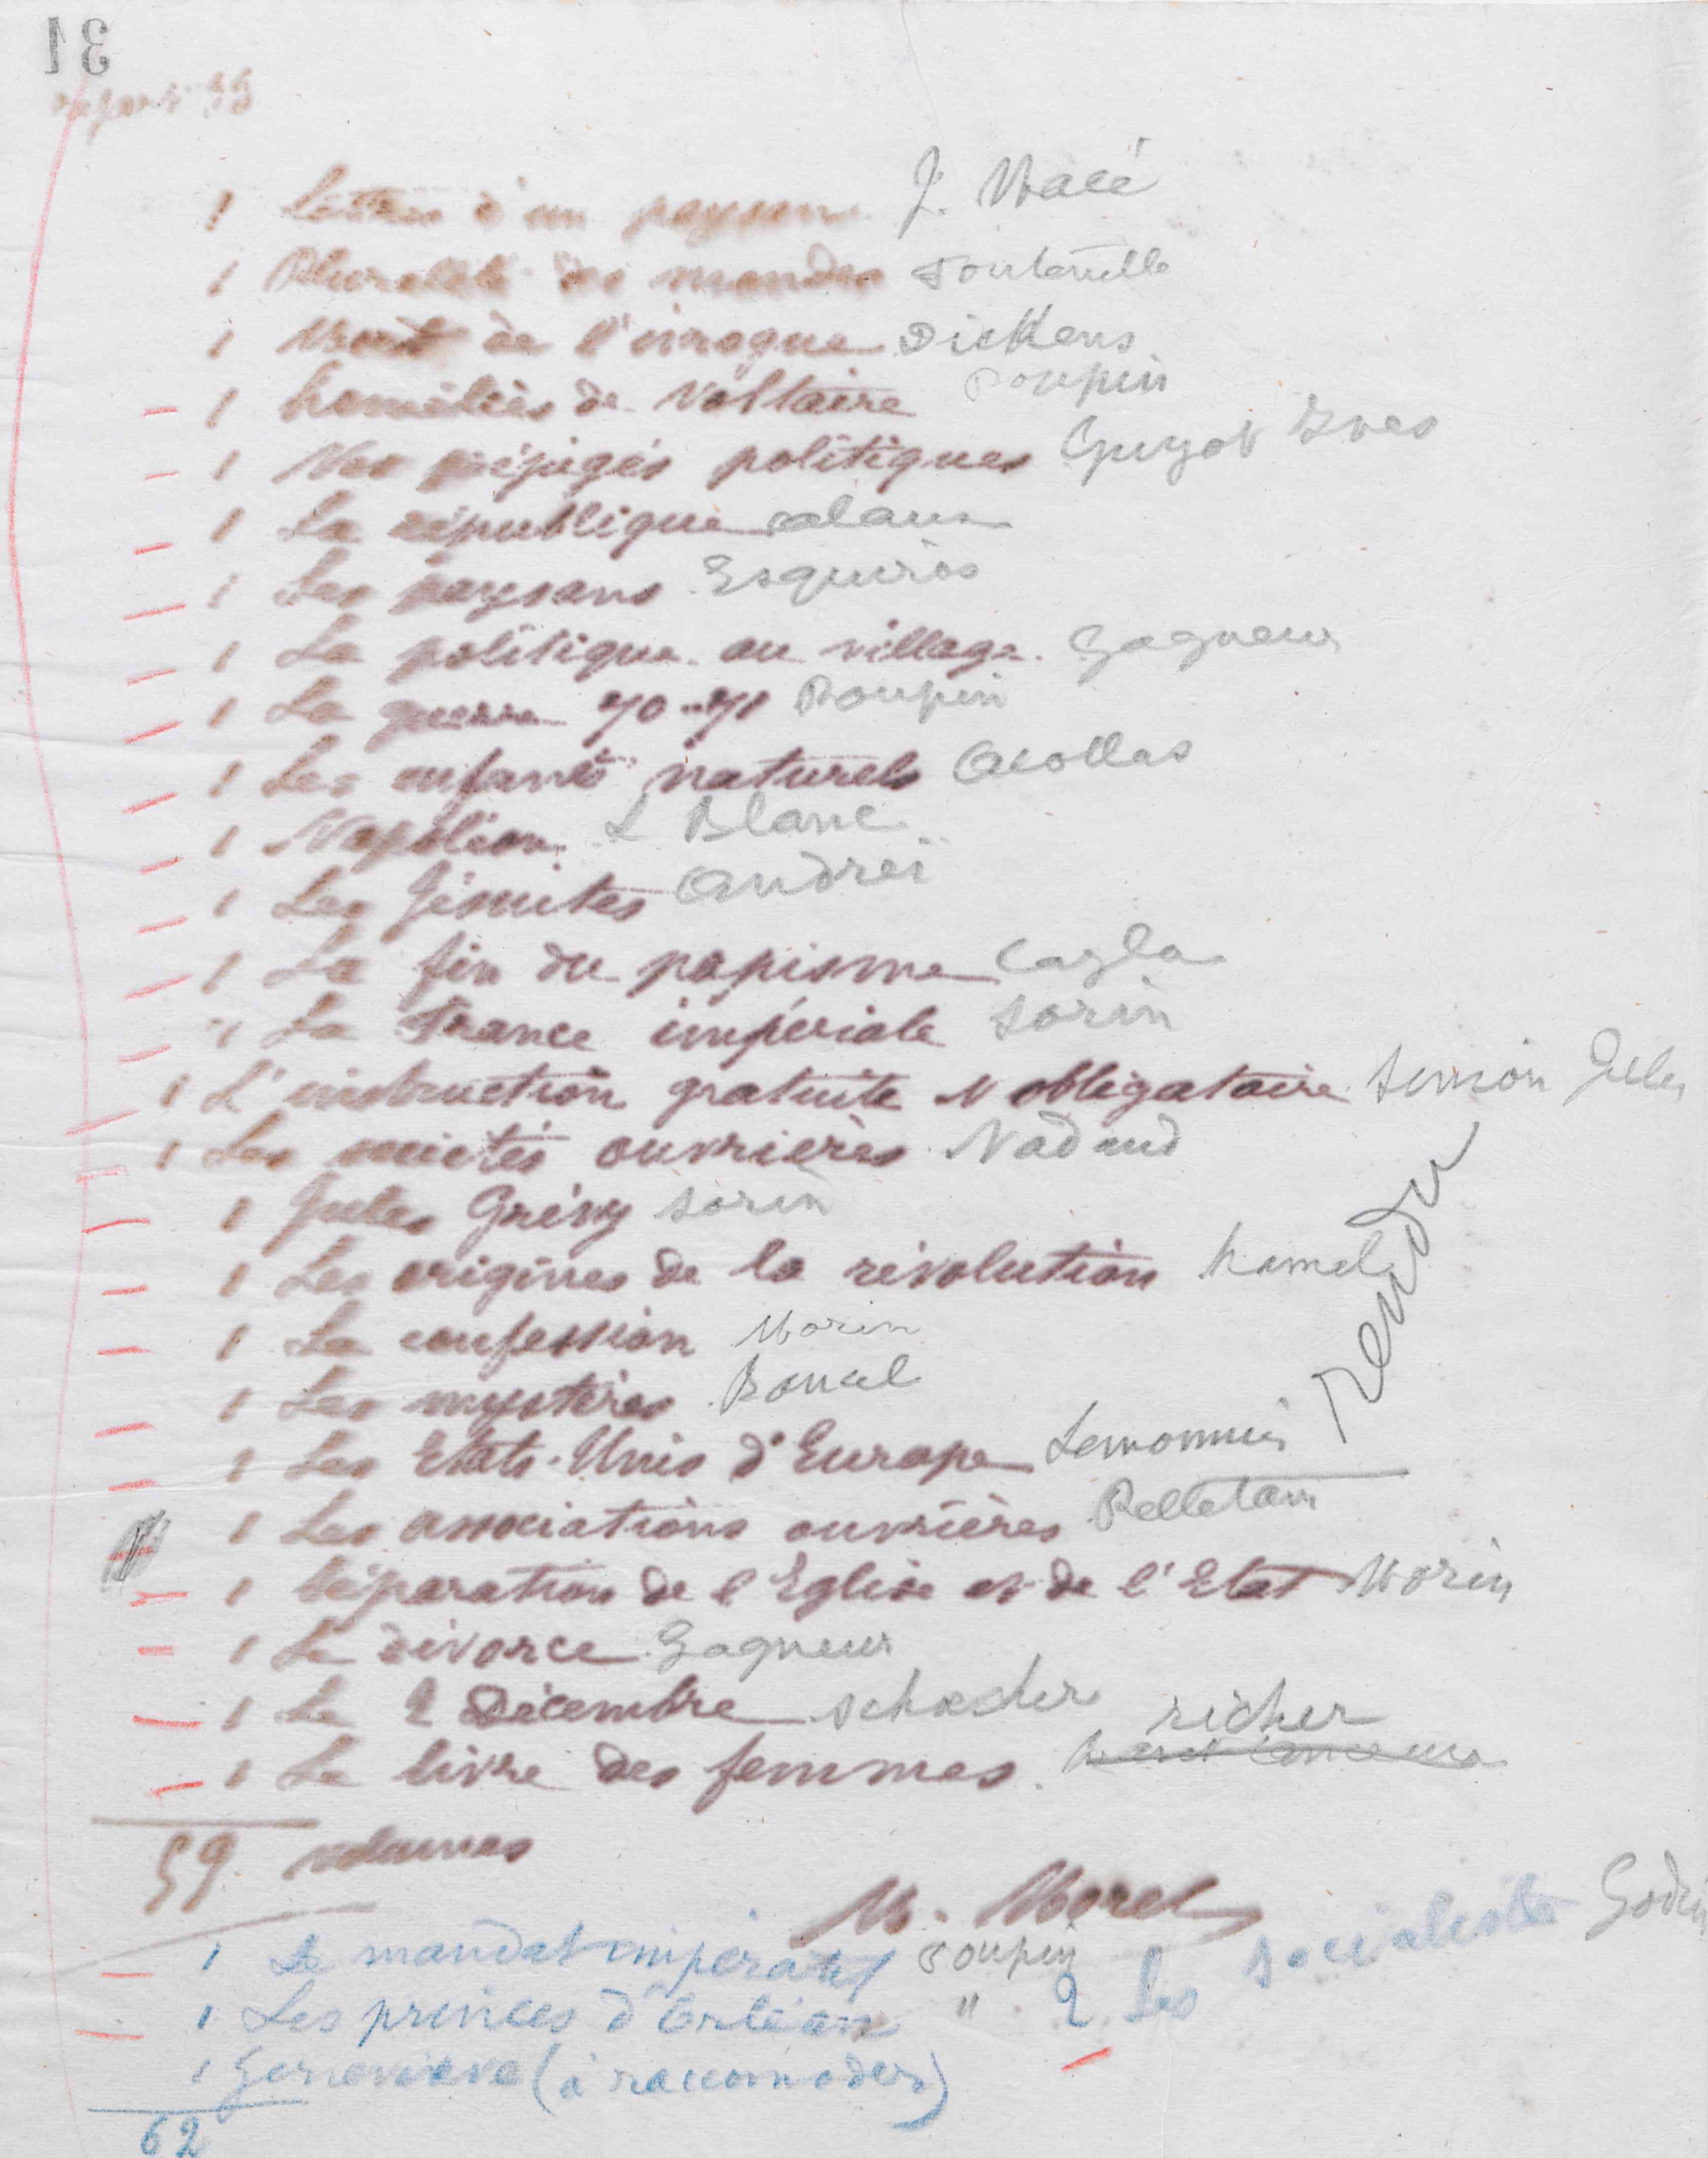 31
report 33
1 Lettres d'un paysan J. Macé
1 Pluralité des mondes Fontenelle
1 Mort de l'ivrogne Dickens
1 homélies de Voltaire Poupin
1 Nos préjugés politiques Guyot Yves
1 La république alaux
1 Les paysans Esquiros
1 La politique au village Gagneur
1 La guerre 70-71 Poupin
1 Les enfants naturels Acollas
1 Napoléon L Blanc
1 Les Jésuites Andreï
1 La fin du papisme Cayla
1 La France impériale Sorin
1 L'instruction gratuite & obligatoire Simon Jules
1 Les sociétés ouvrières Nadaud
1 Jules Grévy Sorin
1 Les origines de la révolution hamel
1 La confession Morin
1 Les mystères Boucel
1 Les Etats-Unis d'Europe Lemonnier
rendu
1 Les associations ouvrières Pelletan
1 Séparation de l'Eglise et de l'Etat Morin
1 Le divorce Gagneur
1 Le 2 Décembre schœlcher
1 Le livre des femmes richer
59 volumes
M. Morel
1 Le mandat impératif Poupin
1 Les princes d'Orléans "
2 Les socialistes Godin
1 Geneviève (à raccomoder)
62